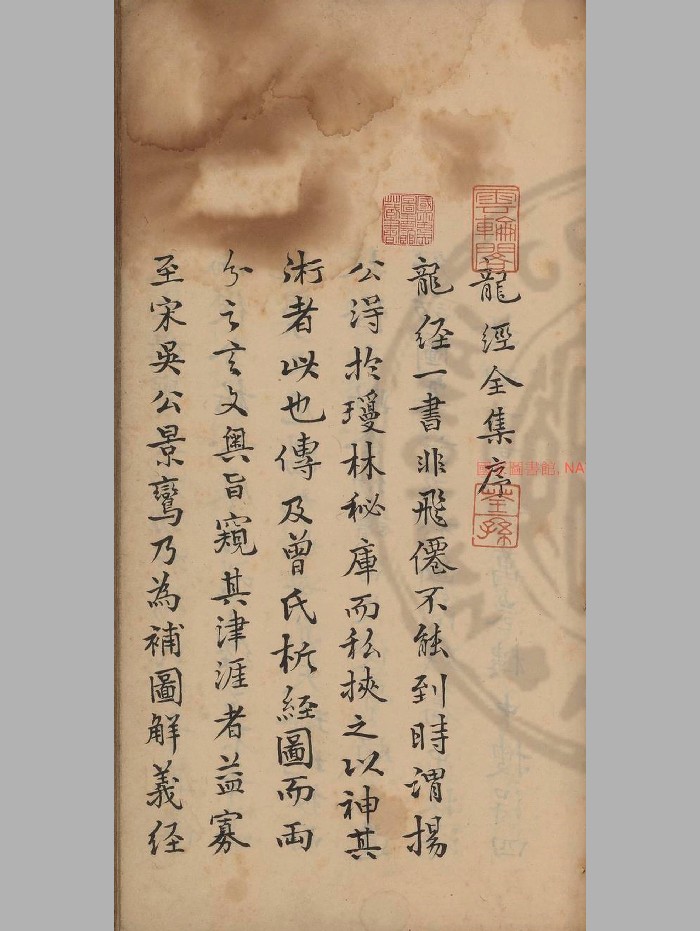 龍經全集序
龍经一書非飛僊不能到時謂揚
公淂扵瓊林秘庫而私挾之以神其
術者以也傳及曽氏析經圖而兩
分之言文奧旨窺其津涯者益寡
至宋吳公景鸞乃為補圖解義经
雲輪閣
荃孫
國家圖書館, NA